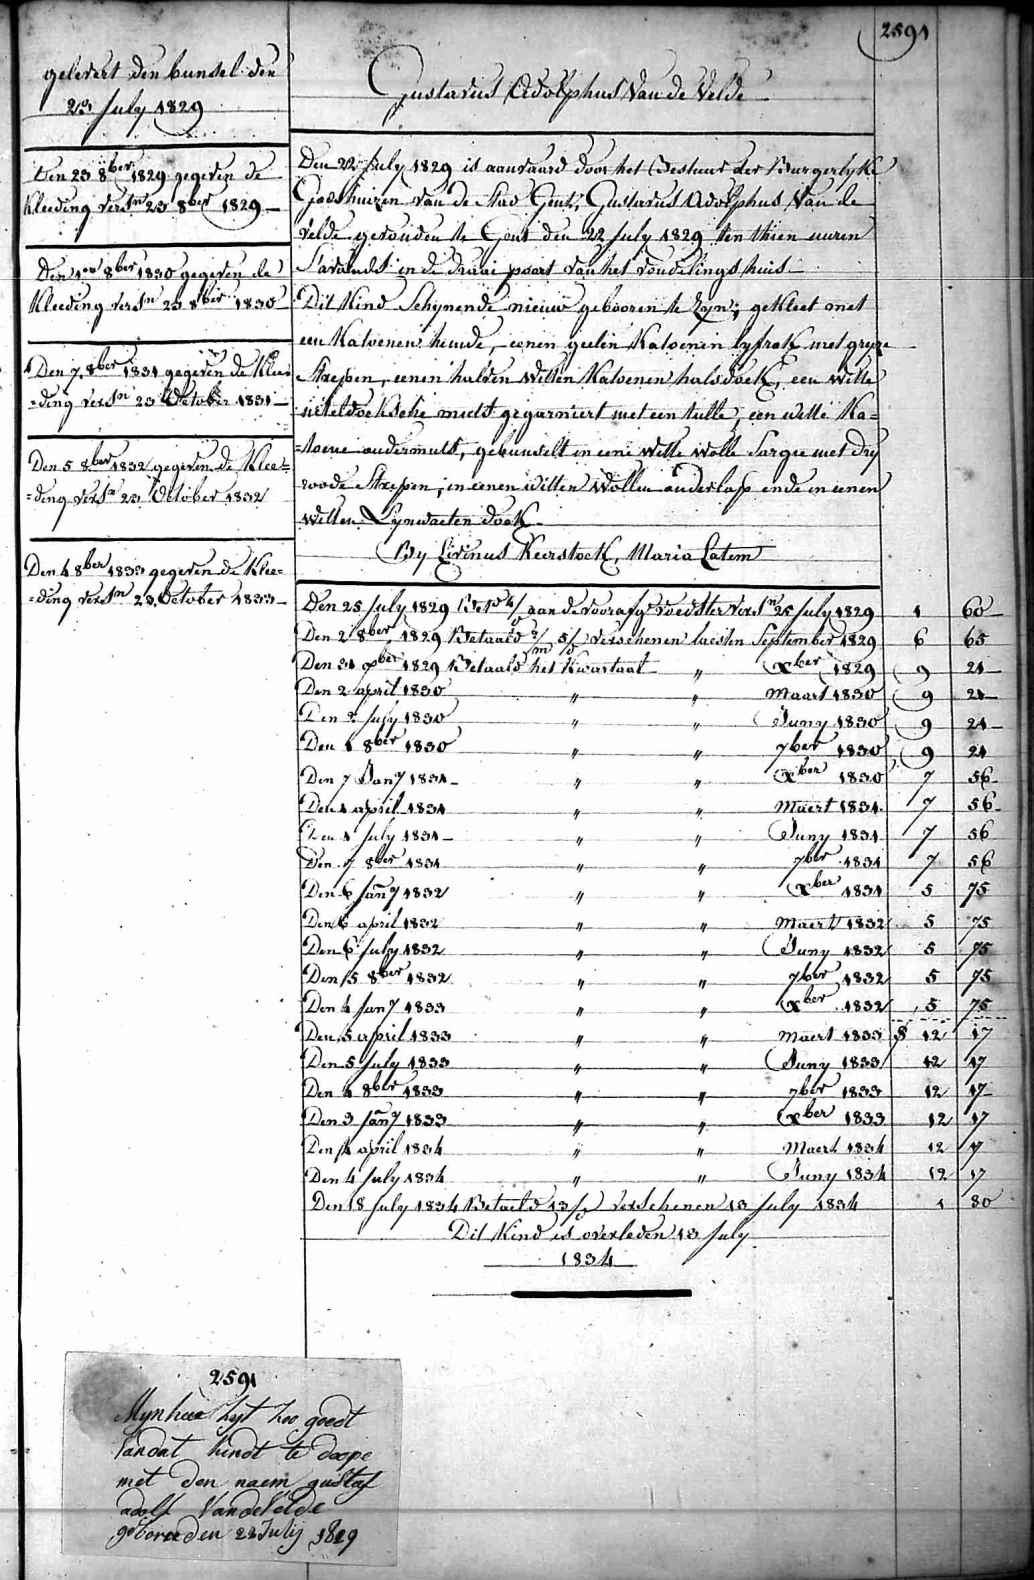 2591
gelevert den bunsel den
23 July 1829
Den 23 8ber 1829 gegeven de
Kleeding versn 23 8ber 1829
Den 1en 8ber 1830 gegeven de
Kleeding versn 23 8ber 1830
Den 7 8ber 1831 gegeven de Klee
=ding versn 23 October 1831
Den 5 8ber 1832 gegeven de Klee=
=ding versn 23 October 1832
Den 4 8ber 1833 gegeven de Klee=
=ding versn 23 October 1833
Gustavus Adolphus Van de Velde
Den 22 July 1829 is aanvaard door het Bestuur der Burgerlyke
Godshuizen van de Stad Gent, Gustavus Adolphus Van de
Velde gevonden te Gent den 22 July 1829 ten thien uuren
S'avonds in de draai poort van het vondelings huis
Dit Kind Schynende nieuw gebooren te zyn; gekleet met
een Katoenen hemde, eenen geelen Katoenen lyfrok met gryze
Streepen, eenen halven witten Katoenen halsdoek, een witte
neteldoeksche muts gegarniert met een tulle, een witte Ka=
=toene ondermuts, gebunselt in eene witte wolle Sargie met dry
roode Streepen, in eenen witten wollen onderlap ende in eenen
witten Lynwaeten doek
By Livinus Keerstock, Maria Latem
Den 25 July 1829 aan de voorafge voedster versn 25 July 1829 1 60
Den 2 8ber 1829 Betaald 2/m 5/d verschenen laesten September 1829 6 65
Den 31 xber 1829 Betaald het Kwartaal " xber 1829 9 24
Den 2 april 1830 " " Maart 1830 9 24
Den 2 July 1830 " " Juny 1830 9 24
Den 1 8ber 1830 " " 7ber 1830 9 24
Den 7 Jany 1831 " " xber 1830 7 56
Den 1 april 1831 " " Maert 1831 7 56
Den 1 July 1831 " " Juny 1831 7 56
Den 7 8ber 1831 " " 7ber 1831 7 56
Den 6 Jany 1832 " " xber 1831 5 75
Den 6 april 1832 " " Maert 1832 5 75
Den 6 July 1832 " " Juny 1832 5 75
Den 5 8ber 1832 " " 7ber 1832 5 75
Den 4 Jany 1833 " " xber 1832 5 75
Den 5 april 1833 " " Maert 1833 12 17
Den 5 July 1833 " " Juny 1833 12 17
Den 4 8ber 1833 " " 7ber 1833 12 17
Den 3 Jany 1833 " " xber 1833 12 17
Den 4 april 1834 " " Maert 1834 12 17
Den 4 July 1834 " " Juny 1834 12 17
Den 18 July 1834 Betaeld 13/d verschenen 13 July 1834 1 80
Dit Kind is overleden 13 July
1834
2591
Mynheer zyt zoo goedt
van dat kindt te doope
met den naem gustaf
adolf Vandevelde
geboren den 22 July 1829